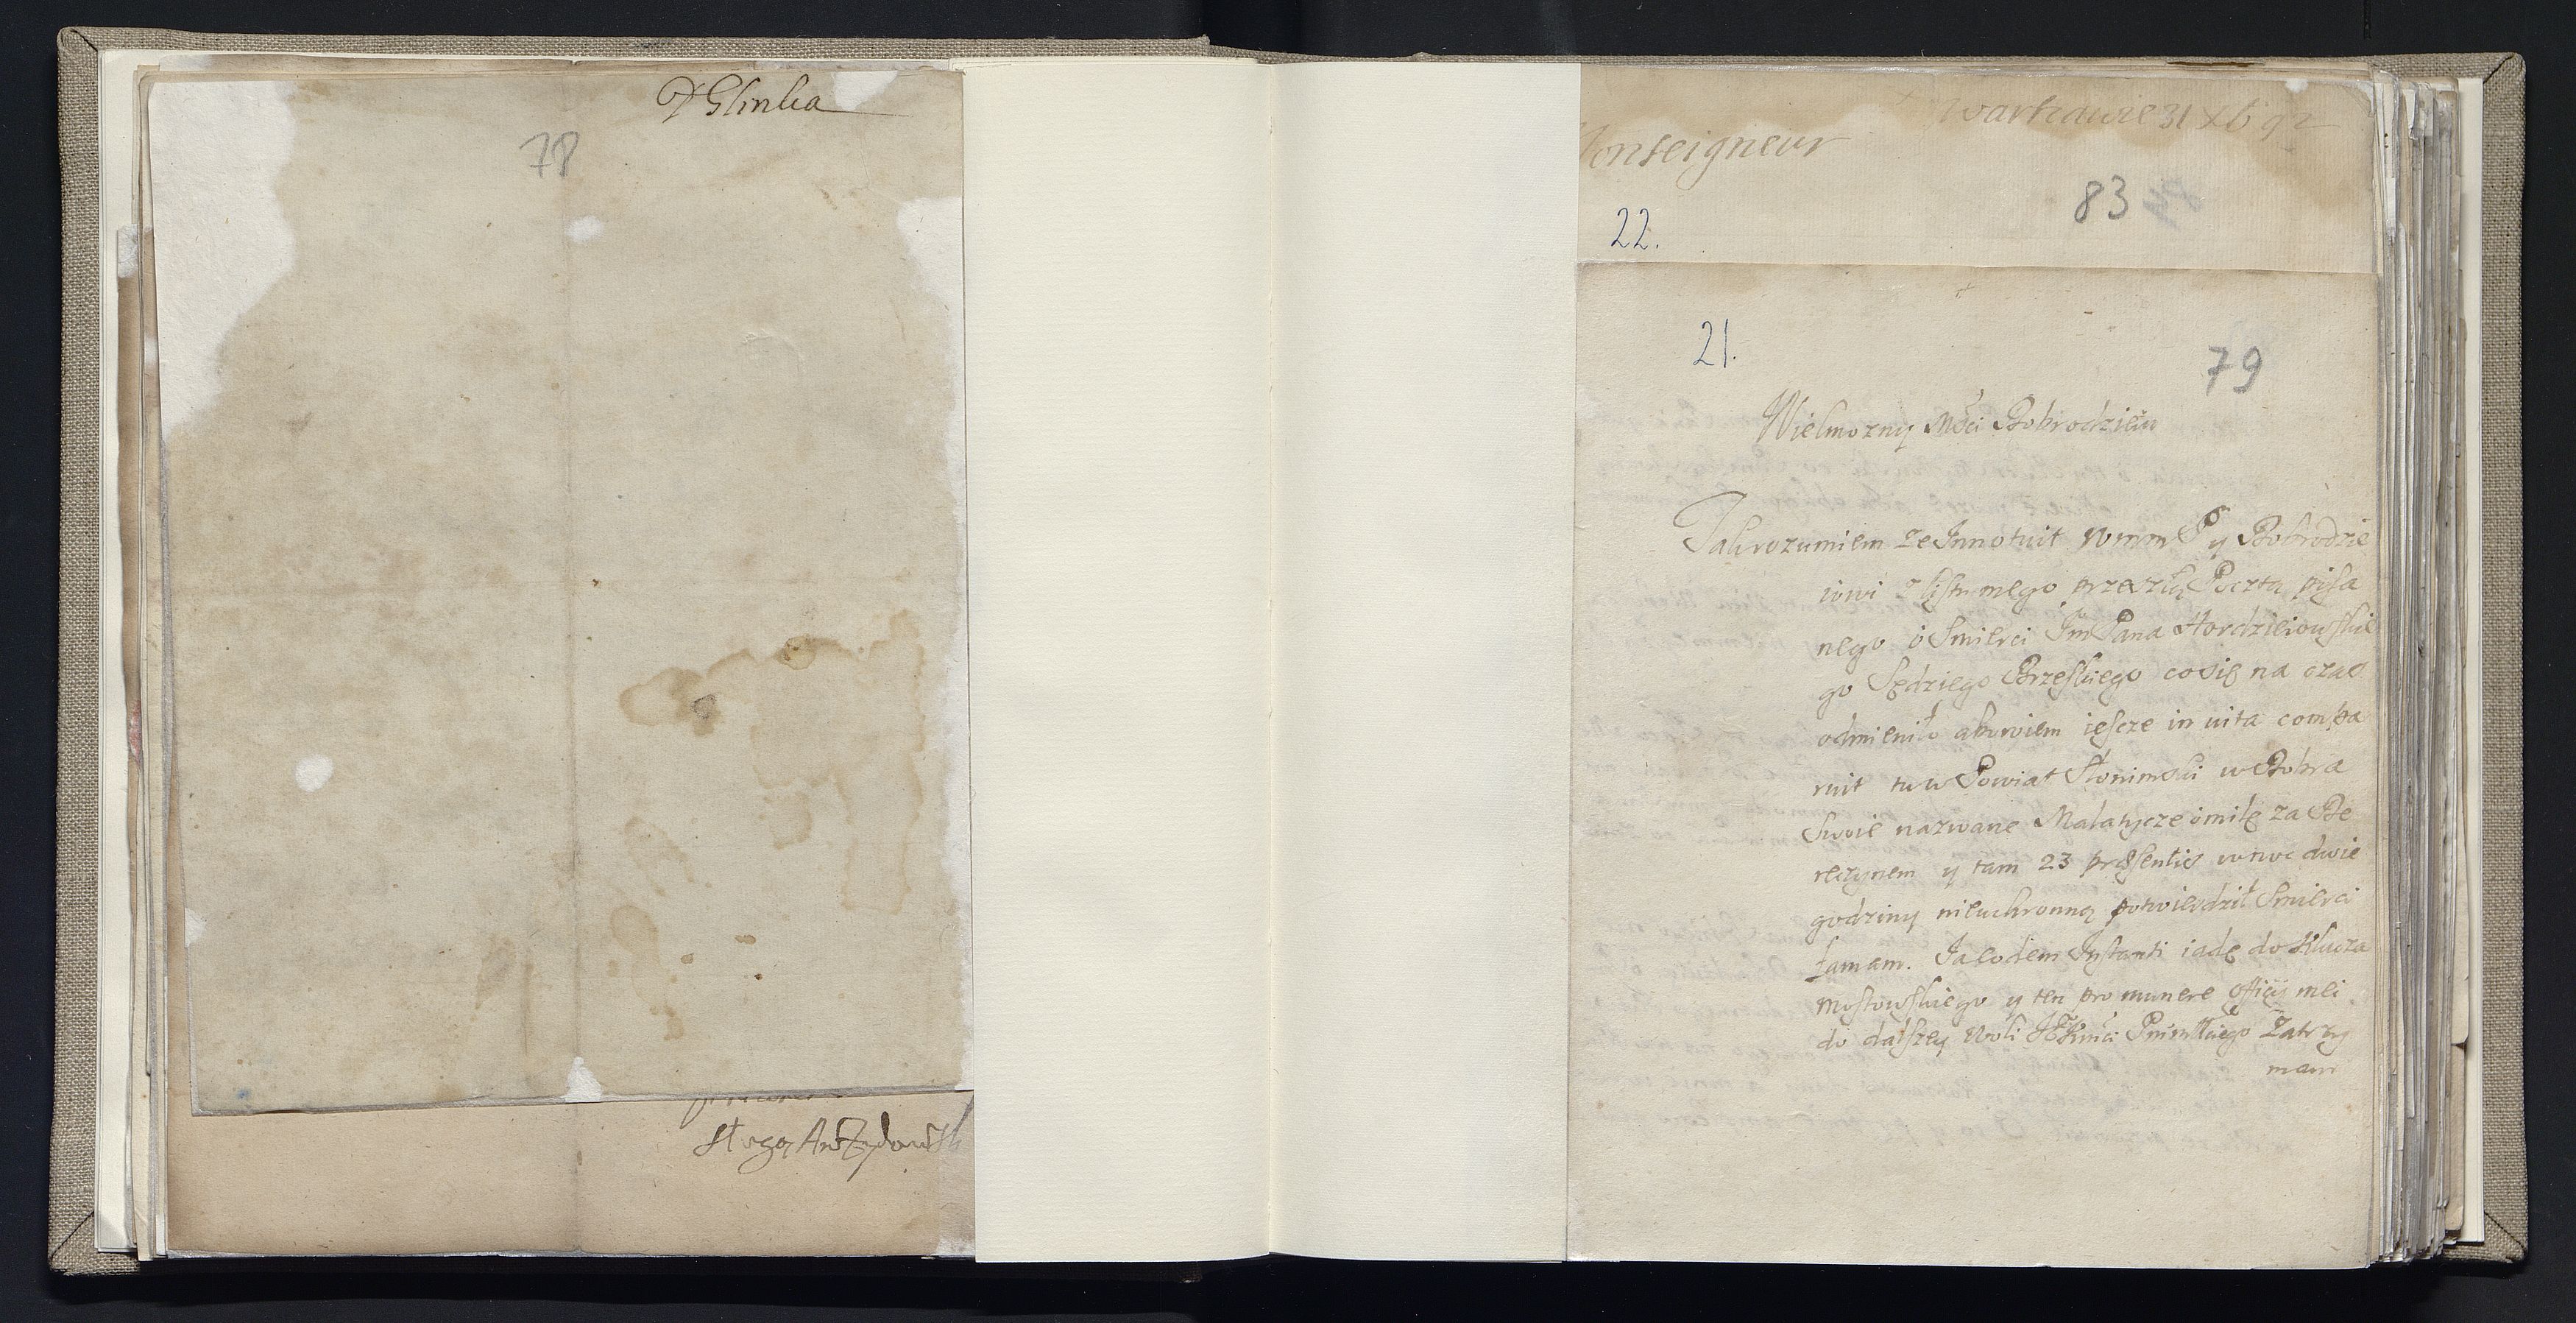 P Glinka
78
sługa
Warhawie 31 Xb 92
onseigneur
83
22.
21.
79
Wielmozny Mści Dobrodzieiu
Jakrozumiem ze Innotuit Wmm P y Dobrodzie
iowi z listu mego przeszłą Pocztą pisa
nego o Smierci Im Pana Hordzieiowskie
go Sędziego Brzeskiego cosię na czas
odmieniło abowiem iescze in vita compa
ruit tu w Powiat Słonimski w Dobra
Swoie nazwane Malatycze o milę za Be
reżynem y tam 23 præsentis wnoc dwie
godziny nieuchronną potwierdził Smierci
famam. Ja eodem Instanti iadę do Klucza
Mostowskiego y ten pro munere officij mei
do dalszey Woli Zatrzy
mam